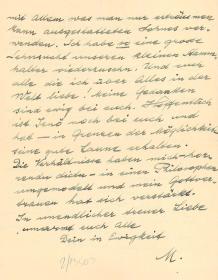 mit allem was man nur erträumen
kann ausgestatteten Formes ver-
wenden. Ich habe so eine grosse
Sehnsucht unseren kleinen Stamm-
halter wiederzusehen. Und euer
alle die ich über alles in der
Welt liebe! Meine Gedanken
sind ewig bei euch. Hoffentlich
ist Jenő noch bei euch und
hat – in Grenzen der Möglichkeit
eine gute Laune erhalten.
Die Verhältnisse haben mich – hor-
rendu dictu – in einen Philosophen
umgemodelt und mein Gottver-
trauen hat sich verstärkt.
In unendlicher treuer Liebe
umarme euch alle
Dein in Ewigkeit
M.